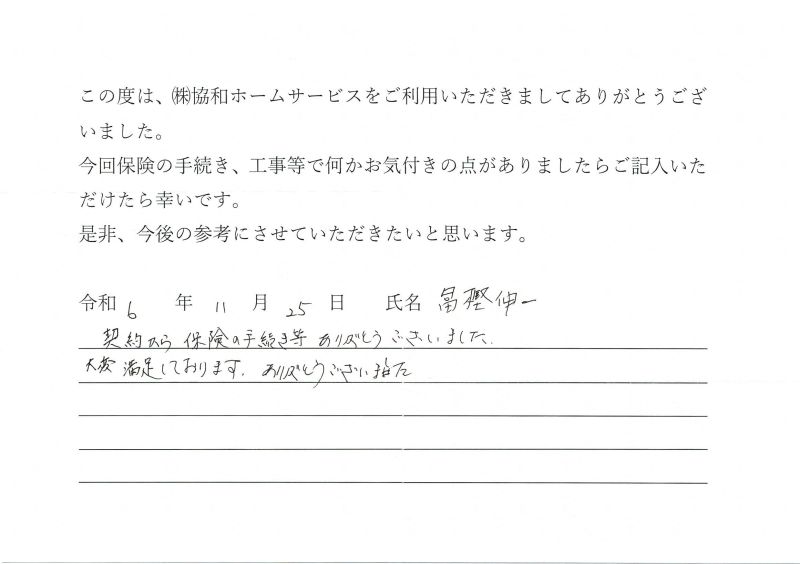 この度は、㈱協和ホームサービスをご利用いただきましてありがとうござ
いました。
今回保険の手続き、工事等で何かお気付きの点がありましたらご記入いた
だけたら幸いです。
是非、今後の参考にさせていただきたいと思います。
令和 6 年 11 月 25 日 氏名 冨樫伸一
契約から保険の手続き等ありがとうございました.
大変満足しております. ありがとうございました